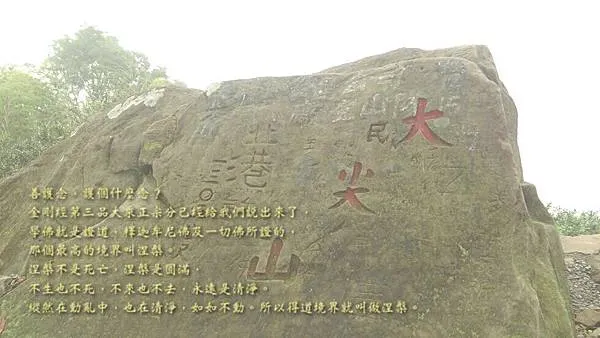 大尖山
民
山
北巷
三〇
善護念，護個什麼念？
金剛經第三品大乘正宗分已經給我們說出來了，
學佛就是證道，釋迦牟尼佛及一切佛所證的，
那個最高的境界叫涅槃。
涅槃不是死亡，涅槃是圓滿，
不生也不死，不來也不去，永遠是清淨。
縱然在動亂中，也在清淨，如如不動。所以得道境界就叫做涅槃。